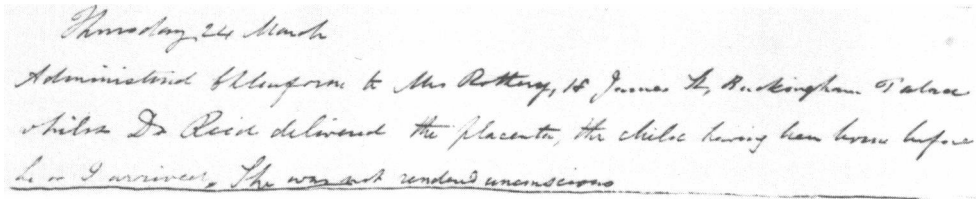 Thursday 24 March
Administered Chloroform to Mrs Rottery, 18 James St, Buckingham Palace
whilst Dr Reid delivered the placenta, the child having been born before
he or I arrived. She was not rendered unconscious